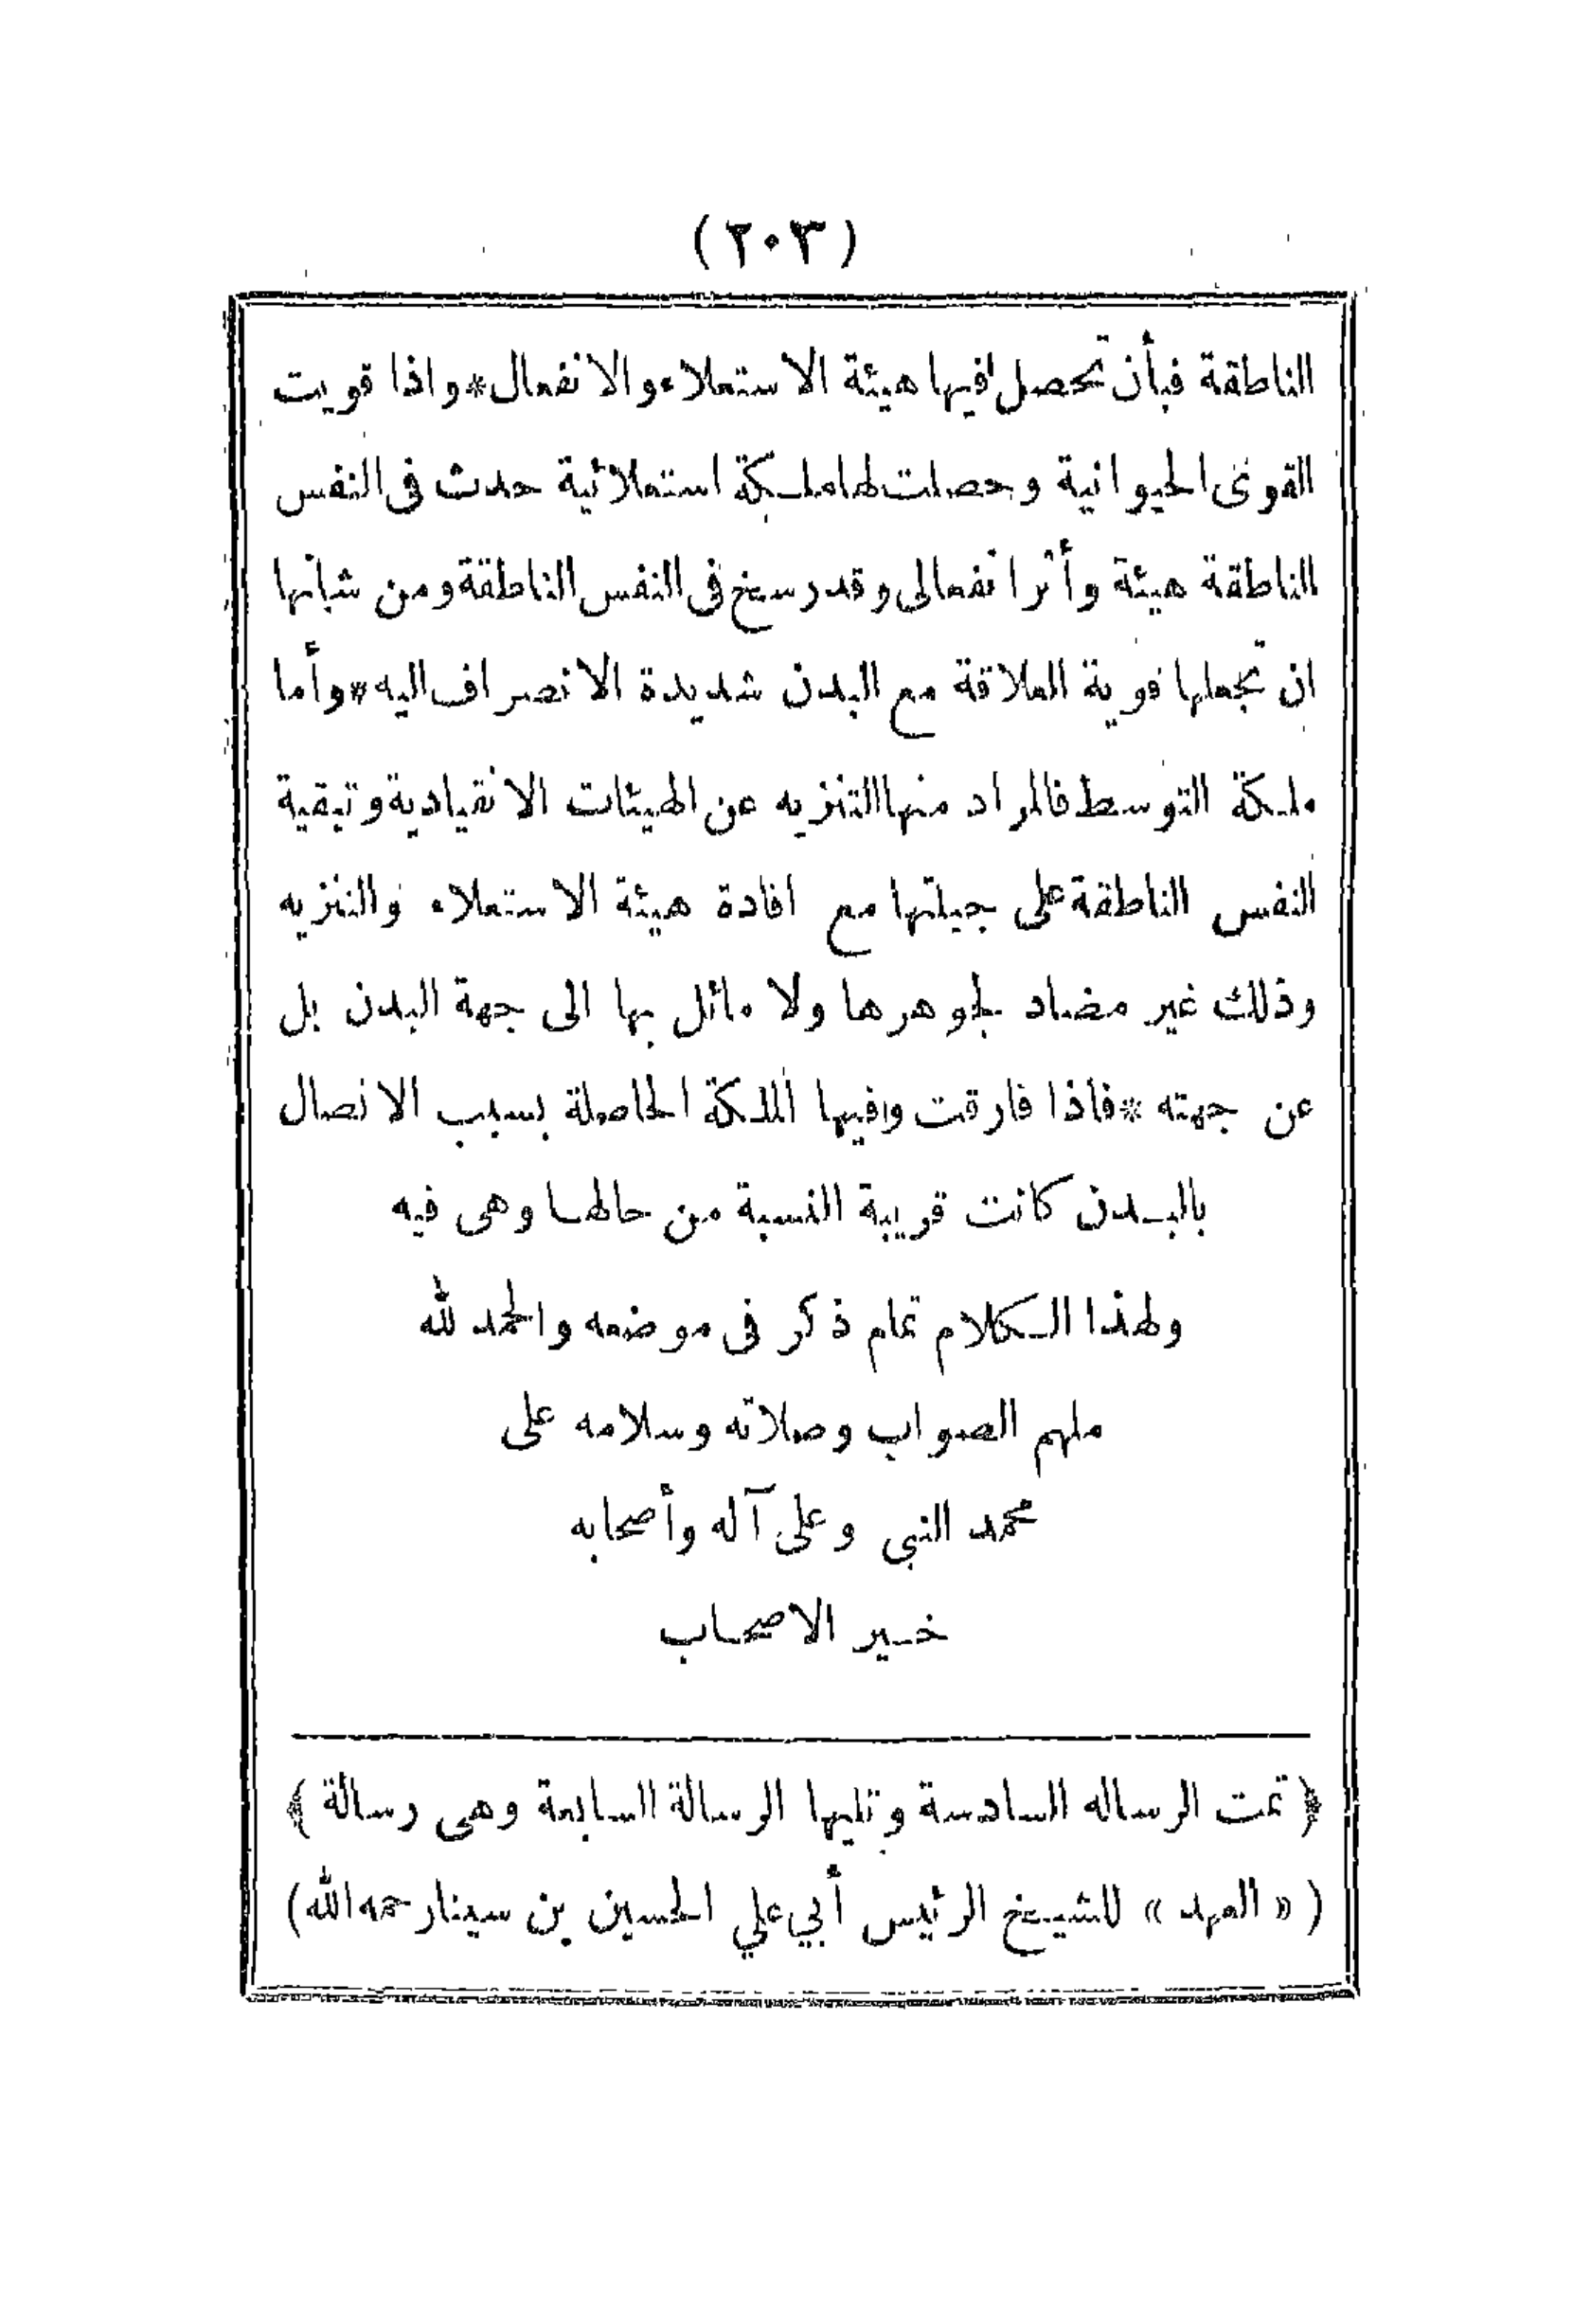 (٢٠٣)
الناطقة فبأن تحصل فيها هيئة الاستعلاء والانفعال * واذا قويت
القوى الحيوانية وحصلت لها ملكة استعلائية حدث فى النفس
الناطقة هيئة وأثر انفعالى وقد رسخ فى النفس الناطقة ومن شأنها
ان تجعلها قوية العلاقة مع البدن شديدة الانصراف اليه * وأما
ملكة التوسط فالمراد منها التنزيه عن الهيئات الانقيادية وتبقية
النفس الناطقة على جبلتها مع افادة هيئة الاستعلاء والتنزيه
وذلك غير مضاد لجوهرها ولا مائل بها الى جهة البدن بل
عن جهته * فاذا فارقت وفيها الملكة الحاصلة بسبب الاتصال
بالبدن كانت قريبة النسبة من حالها وهى فيه
ولهذا الكلام تمام ذكر فى موضعه والحمد لله
ملهم الصواب وصلاته وسلامه على
محمد النبى وعلى آله وأصحابه
خير الاصحاب
﴿ تمت الرساله السادسة وتليها الرسالة السابعة وهى رسالة ﴾
( « العهد » للشيخ الرئيس أبي علي الحسين بن سينا رحمه الله )